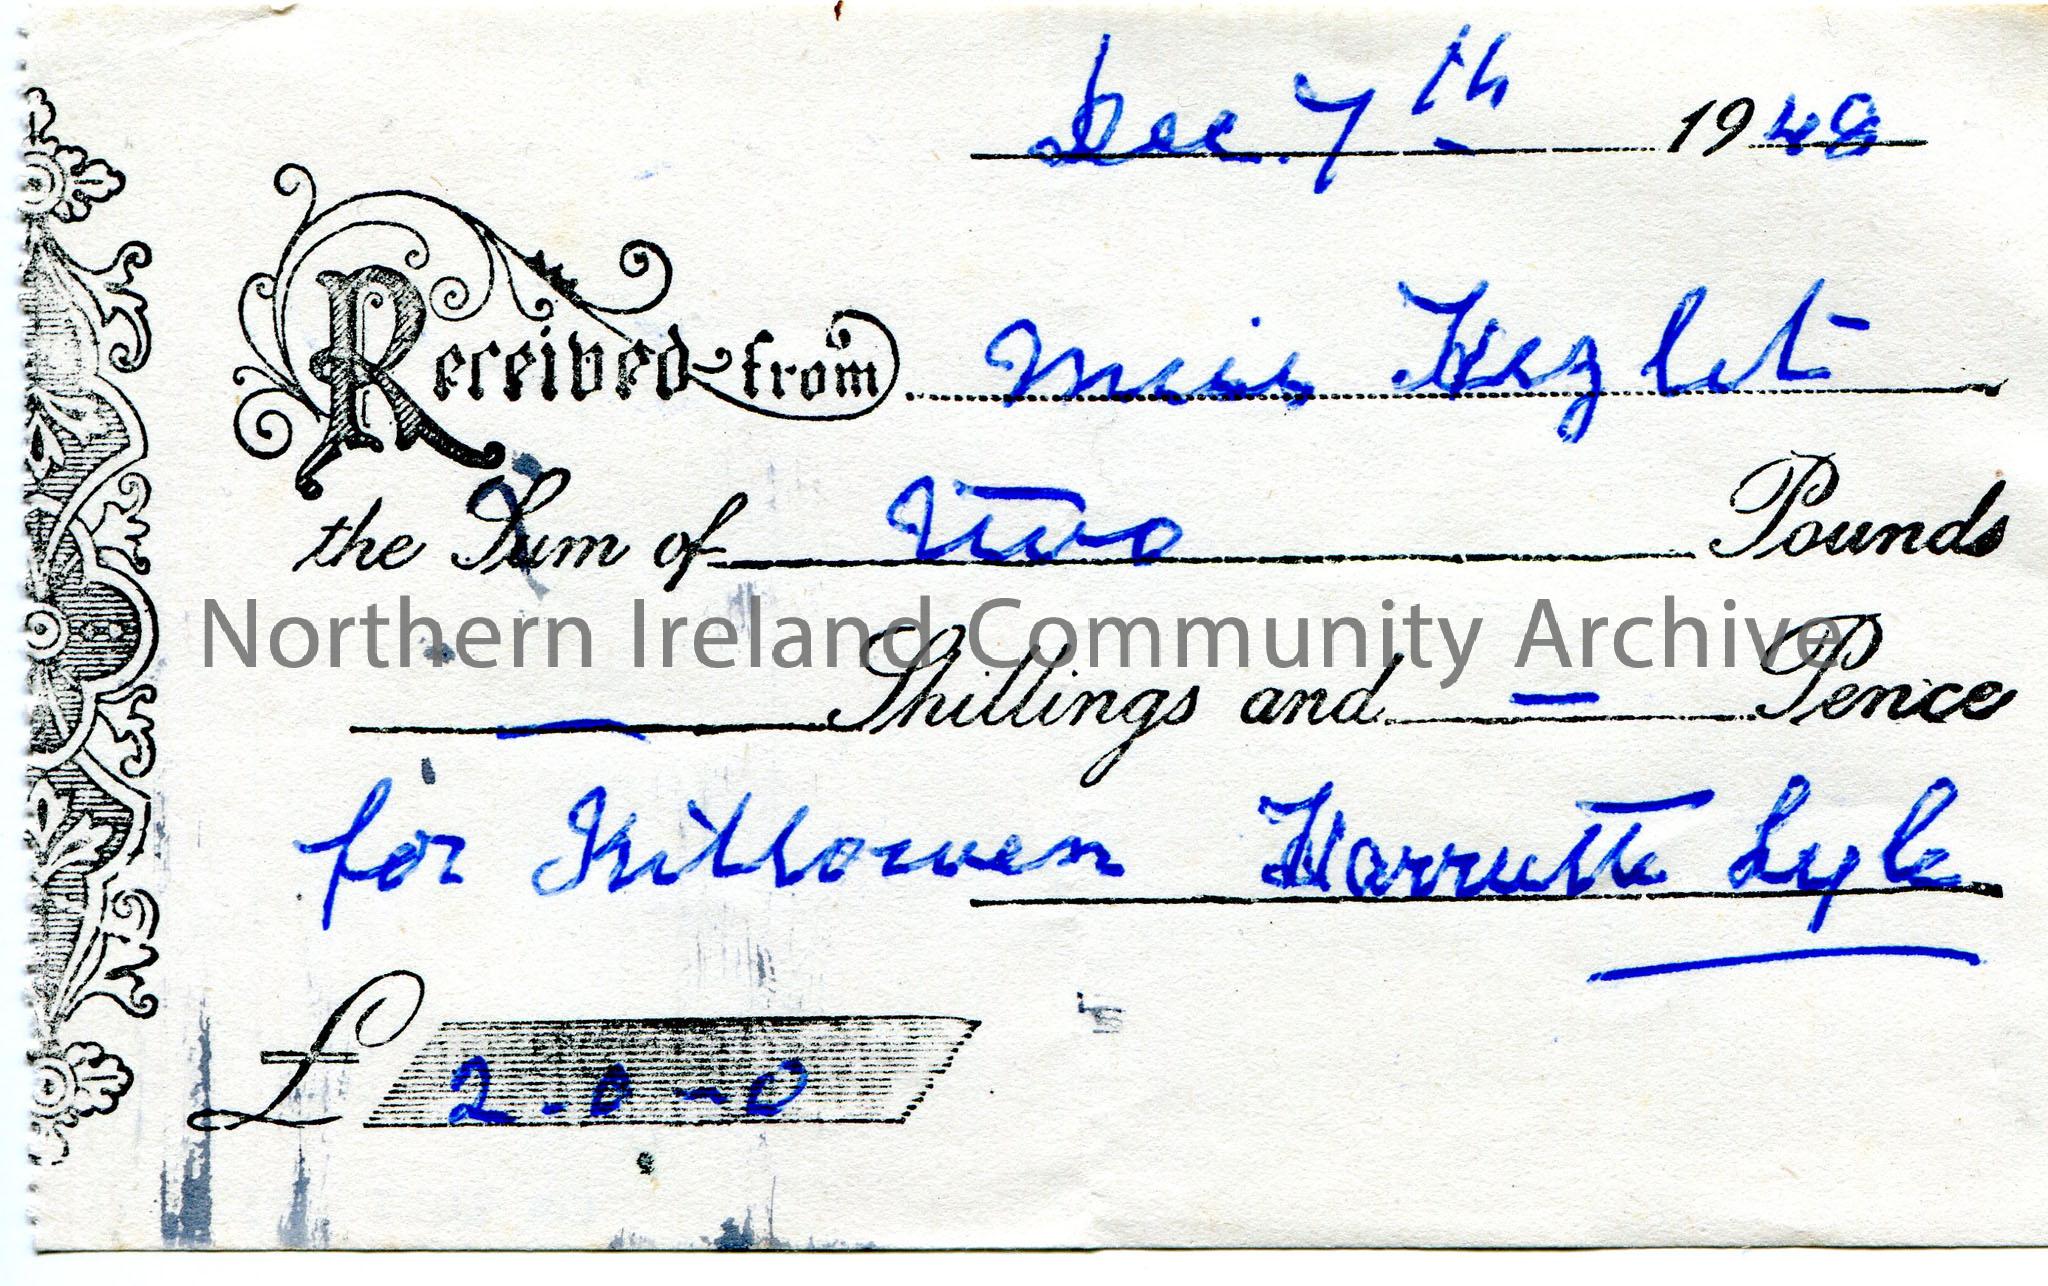 Dec. 7th 1948
Received from Miss Hezlet
the Sum of Two Pounds
Northern Ireland Community Archive
— Shillings and — Pence
for Killowen Harriette Lyle
£ 2-0-0